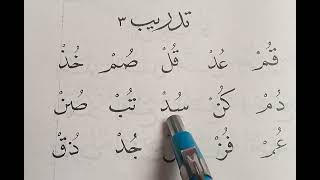 تدريب ٣
قُمْ عُدْ قُلْ صُمْ خُذْ
دُمْ كُنْ سُدْ تُبْ صُنْ
عُمْ فُزْ جُدْ ذُقْ